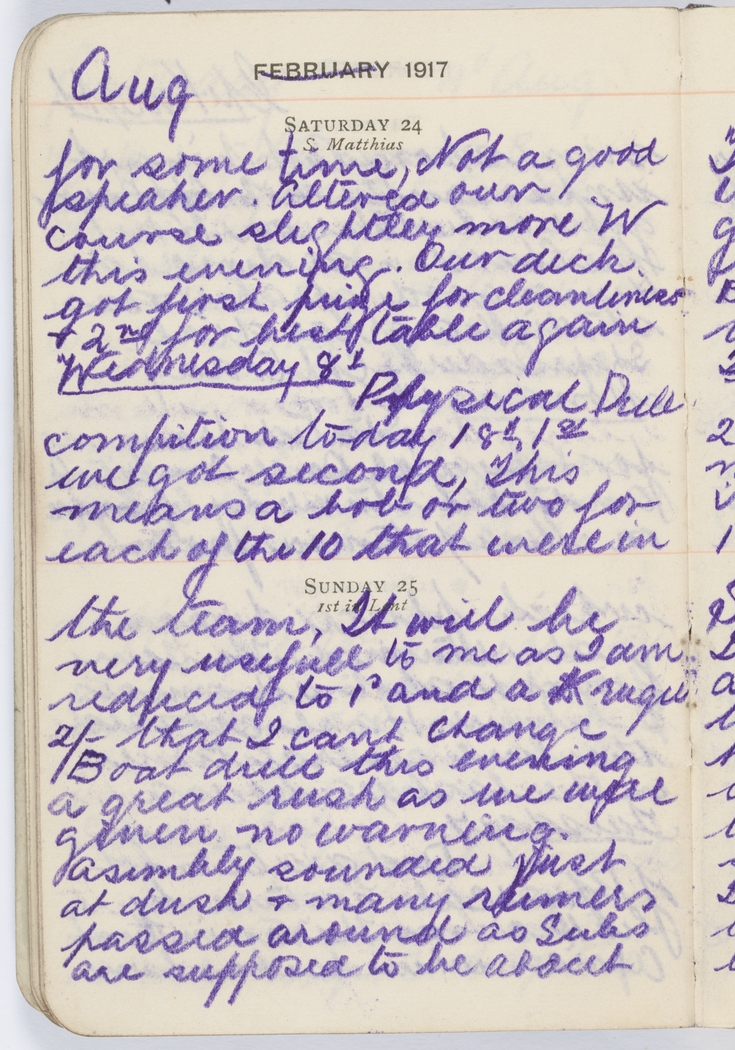 Aug
FEBRUARY 1917
SATURDAY 24
S. Matthias
for some time, Not a good
speaker. altered our
course slightley more W
this evening. Our deck
got first prize for cleanliness
+ 2nd for best table again
Wednesday 8th
Physical Drill
compition to-day 18th, 1st
we got second, This
means a bob or two for
each of the 10 that were in
SUNDAY 25
1st in Lent
the team, It will be
very usefull to me as I am
reduced to 1d and a Kruger
2/- that I cant change
Boat drill this evening
a great rush as we were
given no warning.
asimbly sounded just
at dusk + many rumers
passed around as Subs
are supposed to be about